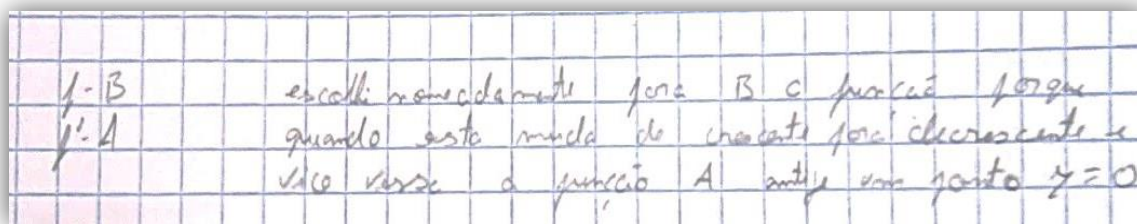 f-B escolhi nomeadamente para B a função porque
f'-A quando esta muda de crescente para decrescente e
vice versa a função A um ponto y=0